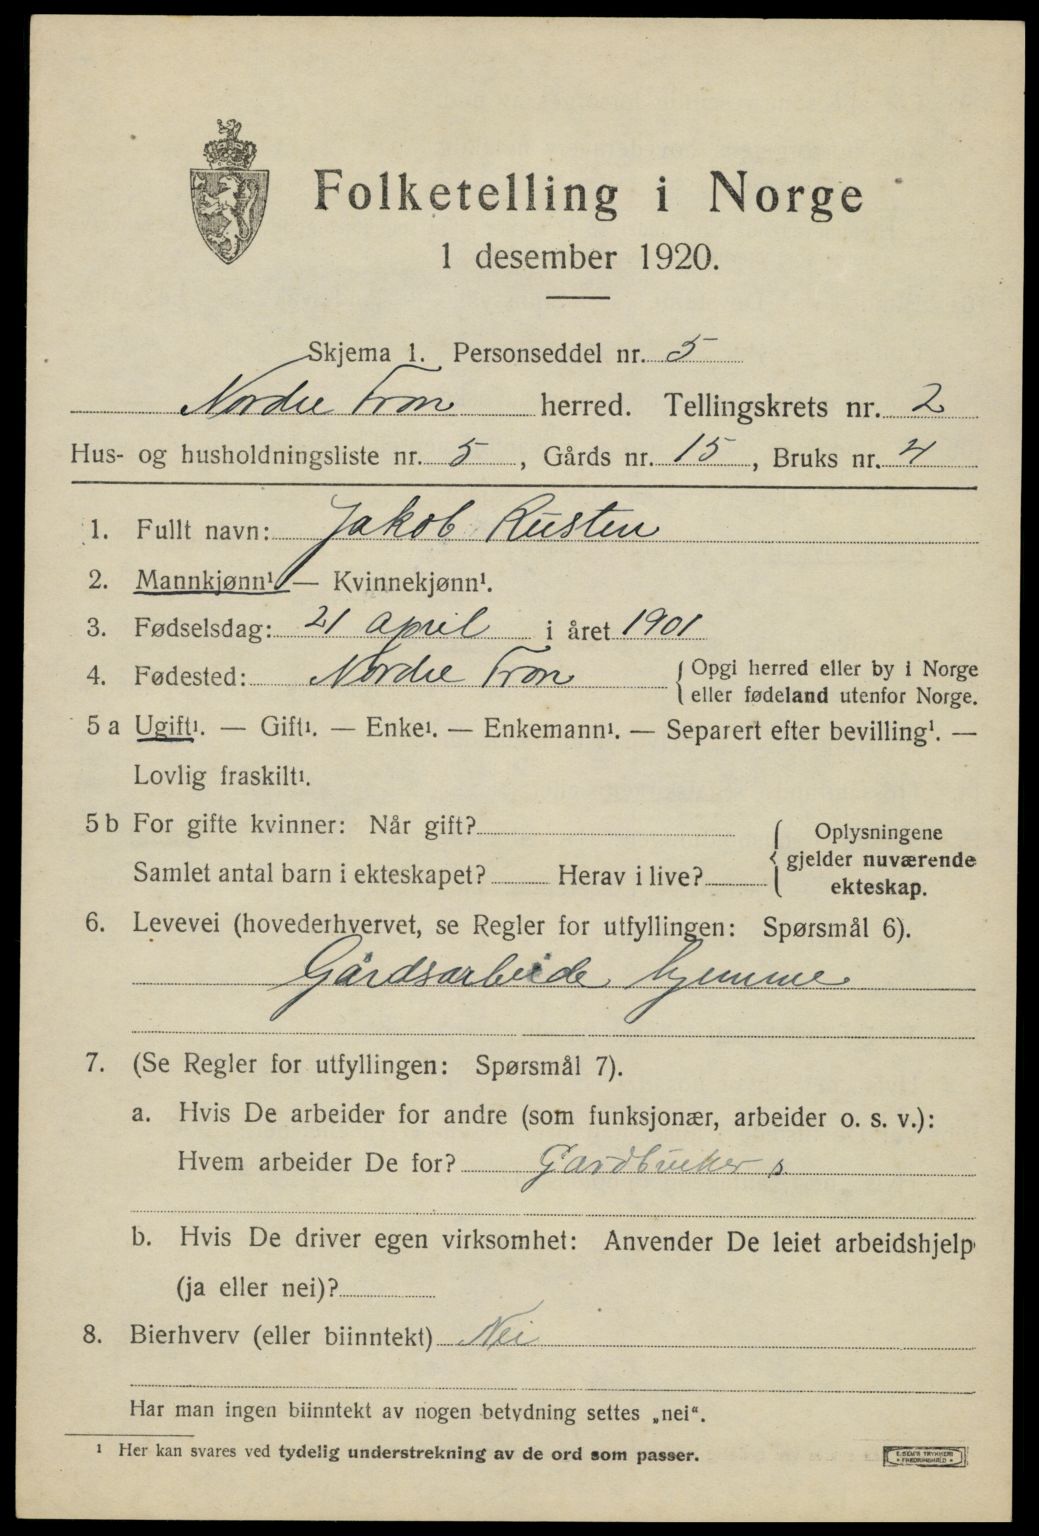 Folketelling i Norge
1 desember 1920.
Skjema 1. Personseddel nr. 5
Nordre Fron herred. Tellingskrets nr. 2
Hus- og husholdningsliste nr. 5, Gårds nr. 15, Bruks nr. 4
1. Fullt navn: Jakob Rusten
2. Mannkjønn¹ — Kvinnekjønn¹.
3. Fødselsdag: 21 april i året 1901
4. Fødested: Nordre Fron { Opgi herred eller by i Norge
eller fødeland utenfor Norge.
5 a Ugift¹. — Gift¹. — Enke¹. — Enkemann¹. — Separert efter bevilling¹. —
Lovlig fraskilt¹.
5 b For gifte kvinner: Når gift?
Samlet antal barn i ekteskapet? Herav i live?
{ Oplysningene
gjelder nuværende
ekteskap.
6. Levevei (hovederhvervet, se Regler for utfyllingen: Spørsmål 6).
Gårdsarbeide hjemme
7. (Se Regler for utfyllingen: Spørsmål 7).
a. Hvis De arbeider for andre (som funksjonær, arbeider o. s. v.):
Hvem arbeider De for? Gardbruker s
b. Hvis De driver egen virksomhet: Anvender De leiet arbeidshjelp
(ja eller nei)?
8. Bierhverv (eller biinntekt) Nei
Har man ingen biinntekt av nogen betydning settes „nei“.
¹ Her kan svares ved tydelig understrekning av de ord som passer.